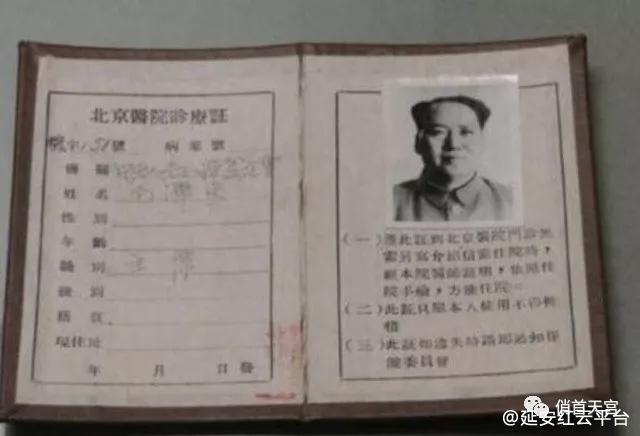 北京醫院診療証
字 51 號 病案號
姓名 毛澤東
性別
年齡
職別 主席
級別
籍貫
現住址
年 月 日發
(一)憑此証到北京醫院門診無
需另寫介紹信需住院時,
經本院醫師証明,依照住
院手續,方准住院。
(二)此証只限本人使用不得轉
借
(三)此証如遺失時請即通知保
健委員會
俏首天宫
@延安红云平台